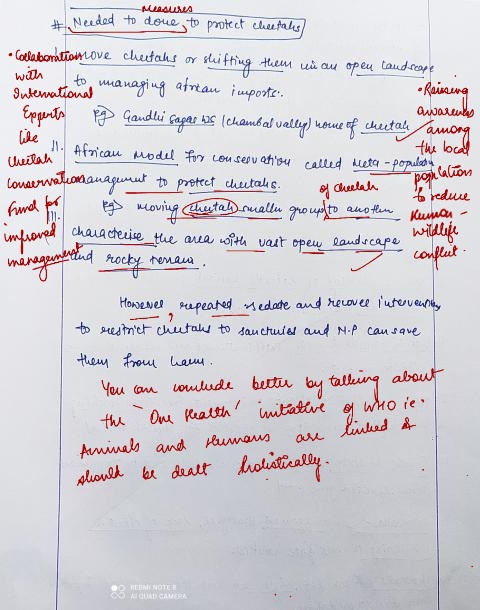 Measures
# Needed to done to protect cheetahs
move cheetahs or shifting them in an open landscape
to managing african imports.
eg) Gandhi Sagar WS (chambal valley) home of cheetah
II. African Model for conservation called Meta-population
management to protect cheetahs.
of cheetah
III. eg) moving cheetah smaller group to another
characterise the area with vast open landscape
and rocky terrain.
However, repeated sedate and recover interventions
to restrict cheetahs to sanctuaries and N.P can save
them from harm.
You can conclude better by talking about
the 'One Health' initiative of WHO ie.
Animals and Humans are linked &
should be dealt holistically.
• Collaboration
with
International
Experts
like
Cheetah
Conservation
Fund for
improved
management
• Raising
awareness
among
the local
population
to reduce
Human-
Wildlife
conflict.
REDMI NOTE 8
AI QUAD CAMERA